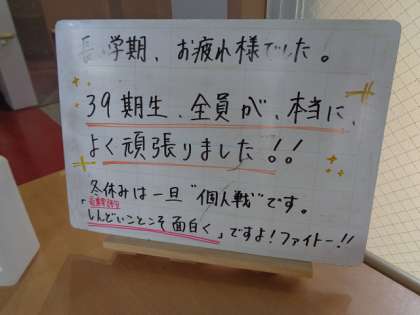 長い学期、お疲れ様でした。
39期生、全員が、本当に、
よく頑張りました!!
冬休みは一旦"個人戦"です。
「しんどいことこそ面白く」ですよ!ファイトー!!